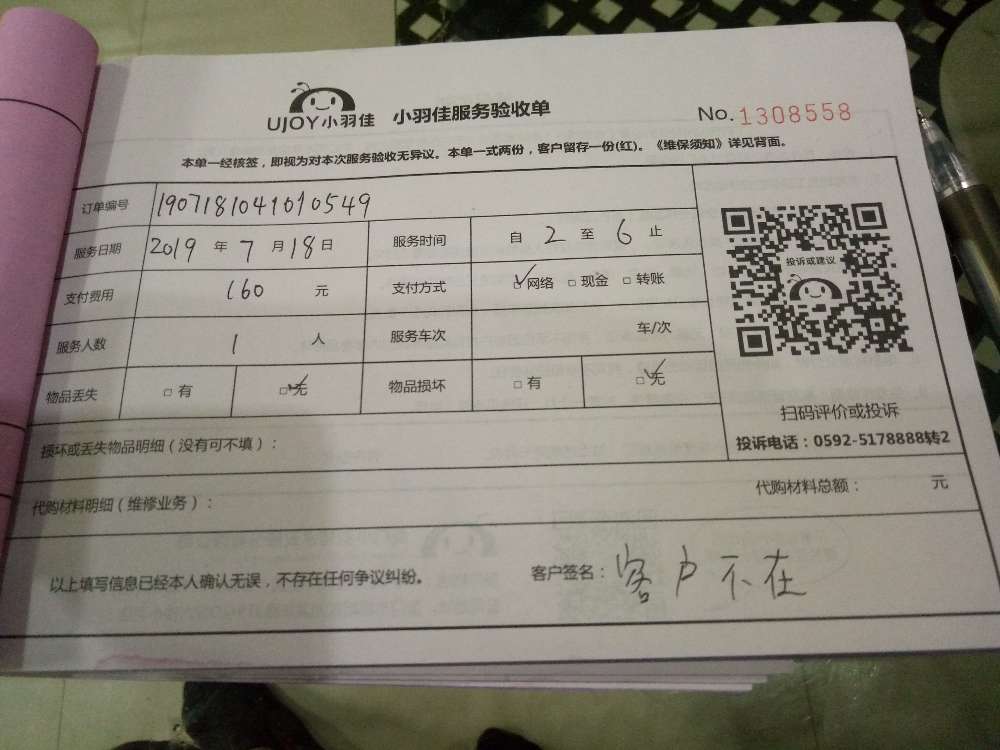 UJOY小羽佳 小羽佳服务验收单 No.1308558
本单一经核签，即视为对本次服务验收无异议。本单一式两份，客户留存一份(红)。《维保须知》详见背面。
订单编号 1907181041010549
服务日期 2019 年 7 月 18 日 服务时间 自 2 至 6 止
投诉或建议
支付费用 160 元 支付方式 ☑网络 □现金 □转账
服务人数 1 人 服务车次 车/次
物品丢失 □有 ☑无 物品损坏 □有 ☑无
扫码评价或投诉
投诉电话：0592-5178888转2
损坏或丢失物品明细（没有可不填）：
代购材料明细（维修业务）： 代购材料总额： 元
以上填写信息已经本人确认无误，不存在任何争议纠纷。 客户签名：客户不在